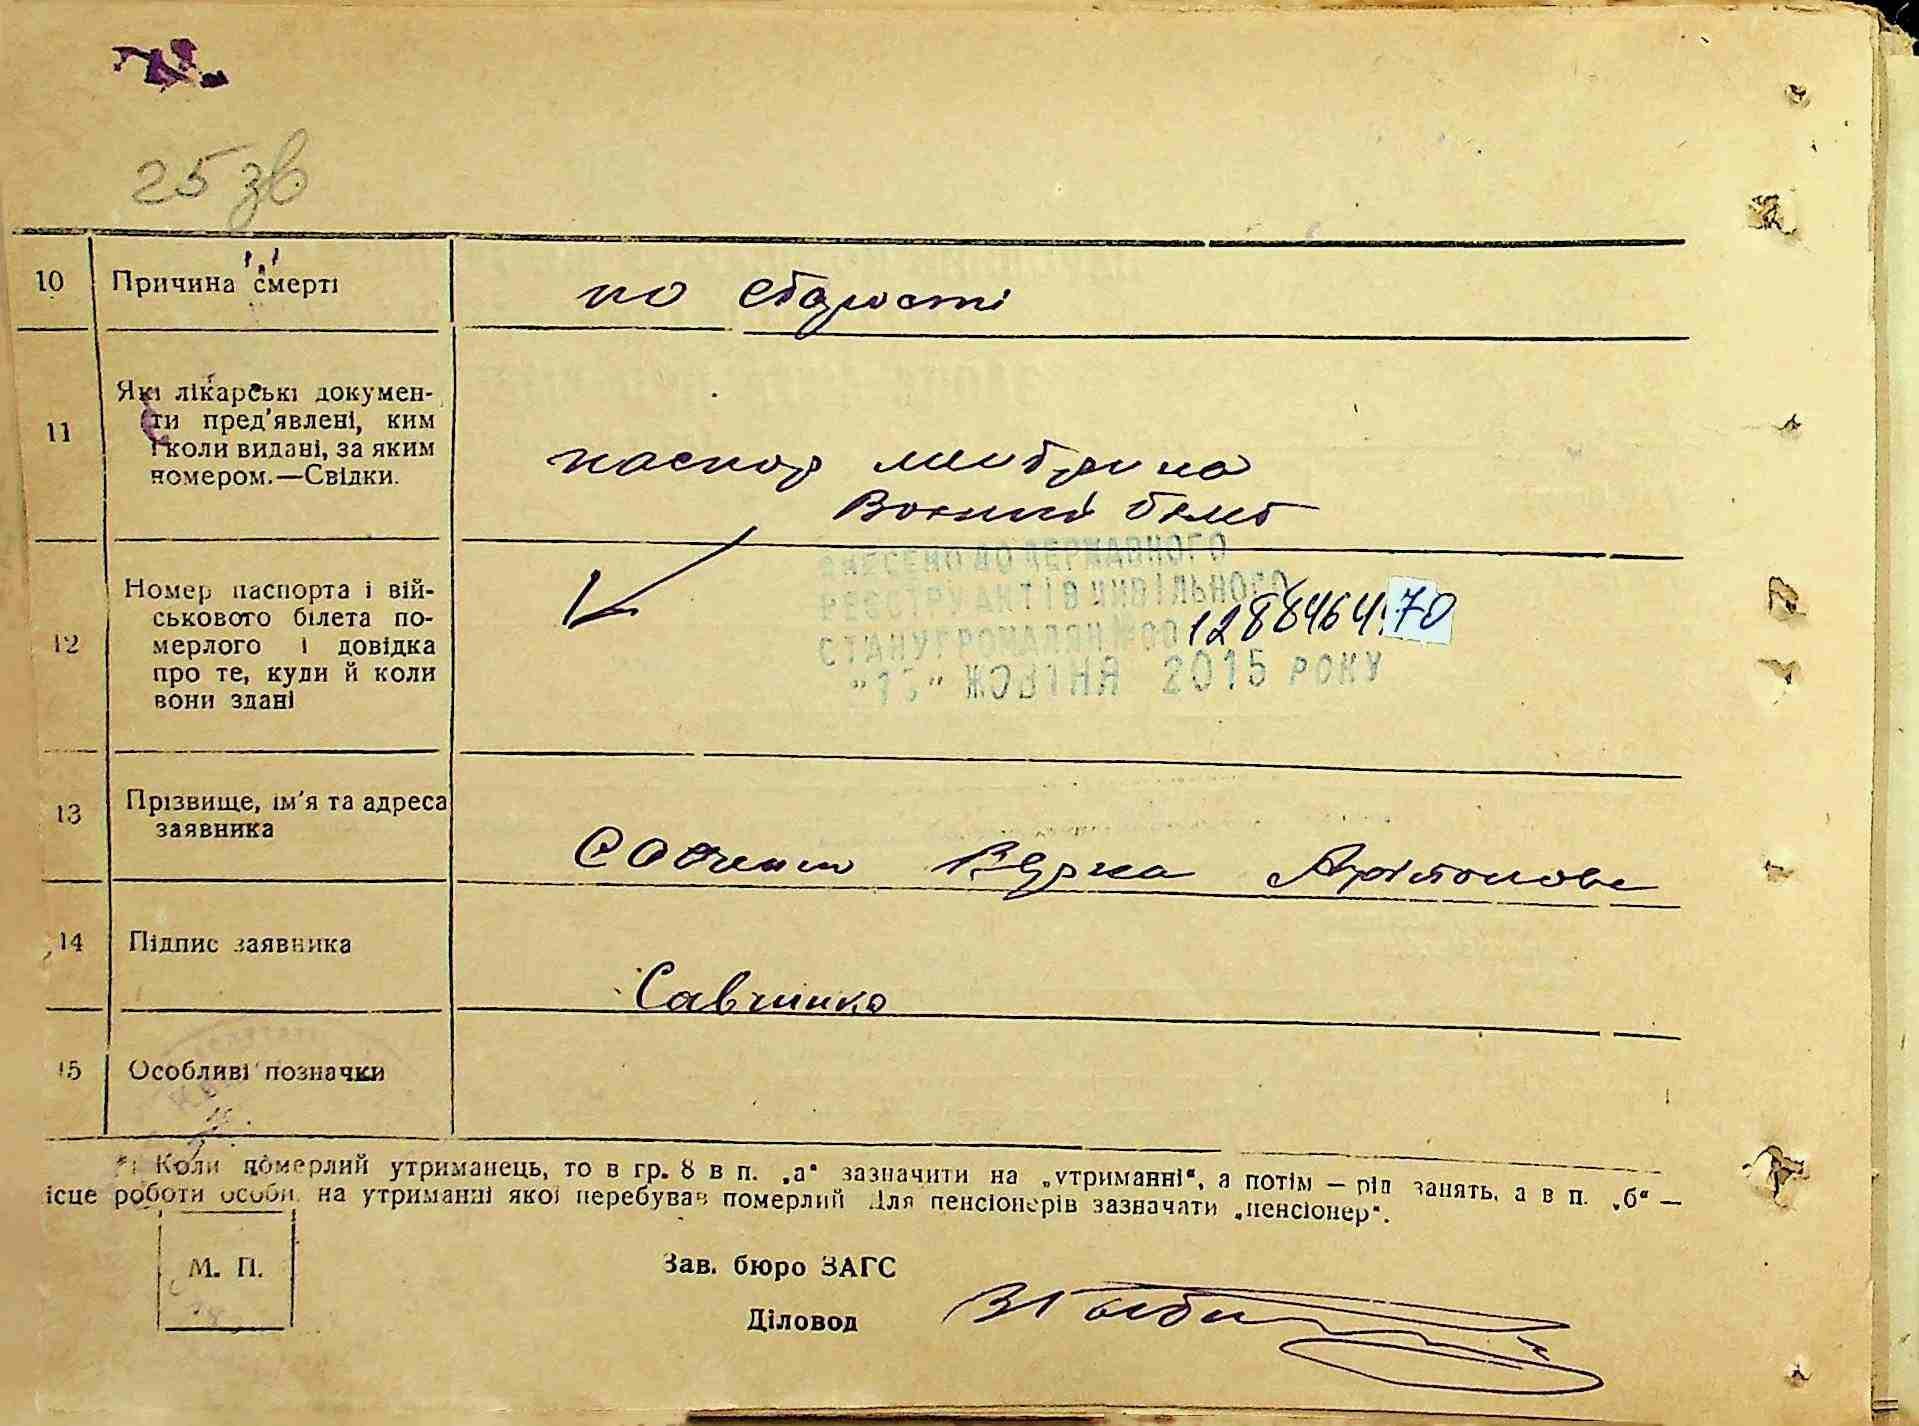 25 зв
10 Причина смерті по старості
11 Які лікарські документи пред'явлені, ким
і коли видані, за яким
номером.—Свідки. паспор метрика
Воений білет
12 Номер паспорта і вій-
ськового білета по-
мерлого і довідка
про те, куди й коли
вони здані
ВНЕСЕНО ДО ДЕРЖАВНОГО
РЕЄСТРУ АКТІВ ЦИВІЛЬНОГО
СТАНУ ГРОМАДЯН №00 1288464570
"15" ЖОВТНЯ 2015 РОКУ
13 Прізвище, ім'я та адреса
заявника
Савченко Варка
14 Підпис заявника
Савчинко
15 Особливі позначки
*) Коли померлий утриманець, то в гр. 8 в п. „а“ зазначити на „утриманні“, а потім — рід занять, а в п. „б“ —
ісце роботи особи, на утриманні якої перебував померлий Для пенсіонерів зазначати „пенсіонер“.
М. П.
Зав. бюро ЗАГС
Діловод